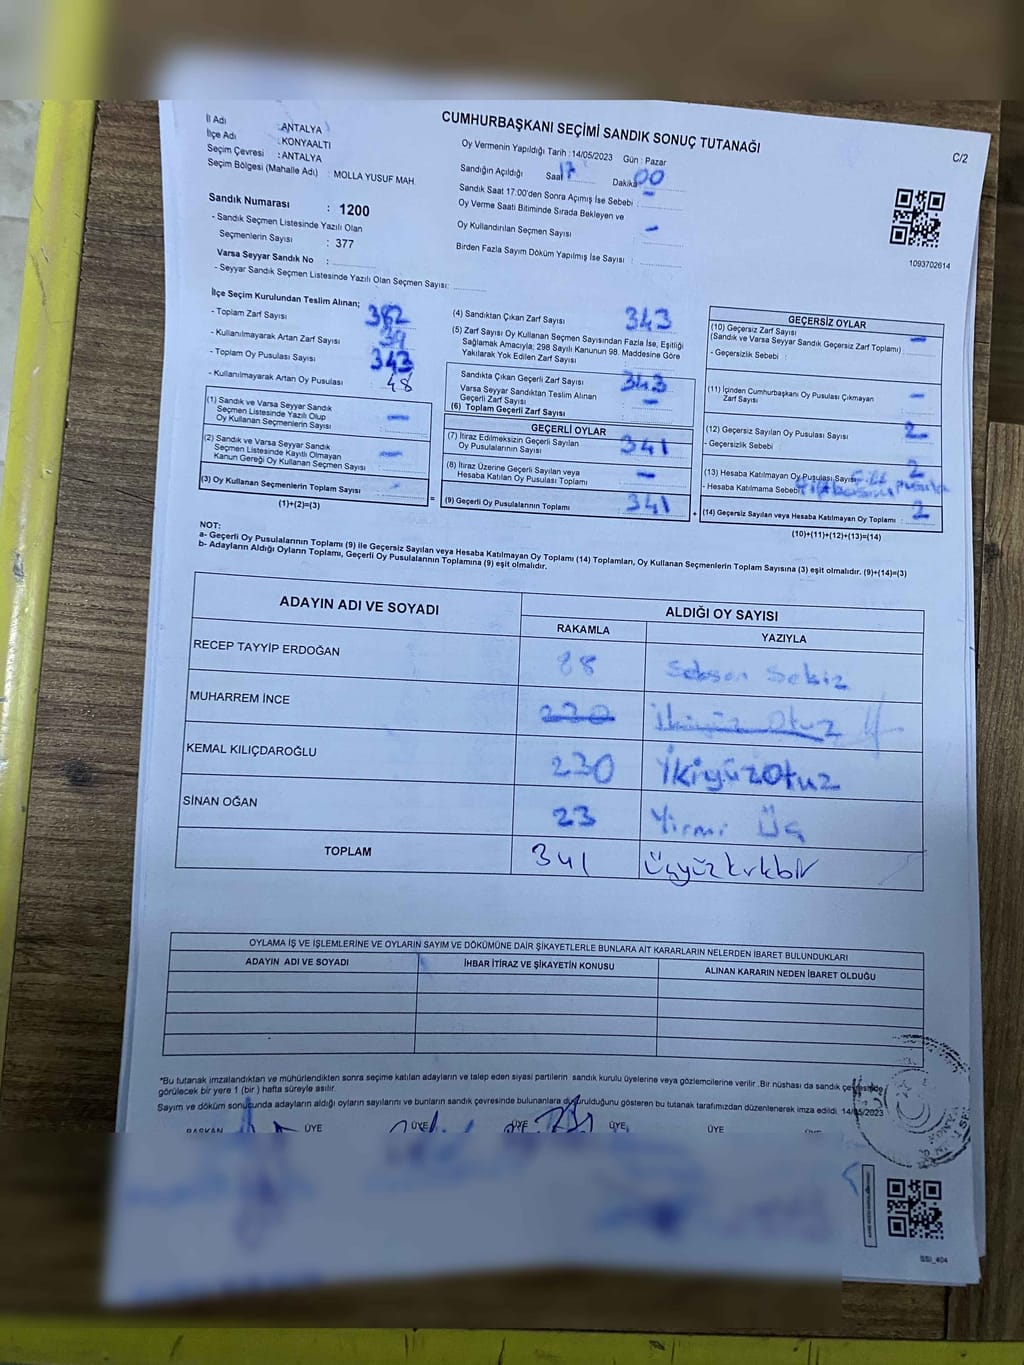 CUMHURBAŞKANI SEÇİMİ SANDIK SONUÇ TUTANAĞI
C/2
İl Adı : ANTALYA
İlçe Adı : KONYAALTI
Seçim Çevresi : ANTALYA
Seçim Bölgesi (Mahalle Adı) : MOLLA YUSUF MAH
Oy Vermenin Yapıldığı Tarih : 14/05/2023 Gün : Pazar
Sandığın Açıldığı Saat 17 Dakika 00
Sandık Saat 17:00'den Sonra Açımış İse Sebebi : -
Oy Verme Saati Bitiminde Sırada Bekleyen ve
Oy Kullandırılan Seçmen Sayısı -
Birden Fazla Sayım Döküm Yapılmış İse Sayısı :
1093702614
Sandık Numarası : 1200
- Sandık Seçmen Listesinde Yazılı Olan
Seçmenlerin Sayısı : 377
Varsa Seyyar Sandık No :
- Seyyar Sandık Seçmen Listesinde Yazılı Olan Seçmen Sayısı:
İlçe Seçim Kurulundan Teslim Alınan;
- Toplam Zarf Sayısı 382
- Kullanılmayarak Artan Zarf Sayısı 39
- Toplam Oy Pusulası Sayısı 343
- Kullanılmayarak Artan Oy Pusulası 48
(1) Sandık ve Varsa Seyyar Sandık
Seçmen Listesinde Yazılı Olup
Oy Kullanan Seçmenlerin Sayısı -
(2) Sandık ve Varsa Seyyar Sandık
Seçmen Listesinde Kayıtlı Olmayan
Kanun Gereği Oy Kullanan Seçmen Sayısı -
(3) Oy Kullanan Seçmenlerin Toplam Sayısı -
(1)+(2)=(3)
=
(4) Sandıktan Çıkan Zarf Sayısı 343
(5) Zarf Sayısı Oy Kullanan Seçmen Sayısından Fazla İse, Eşitliği
Sağlamak Amacıyla; 298 Sayılı Kanunun 98. Maddesine Göre
Yakılarak Yok Edilen Zarf Sayısı
Sandıkta Çıkan Geçerli Zarf Sayısı 343
Varsa Seyyar Sandıktan Teslim Alınan
Geçerli Zarf Sayısı -
(6) Toplam Geçerli Zarf Sayısı :
GEÇERLİ OYLAR
(7) İtiraz Edilmeksizin Geçerli Sayılan
Oy Pusulalarının Sayısı 341
(8) İtiraz Üzerine Geçerli Sayılan veya
Hesaba Katılan Oy Pusulası Toplamı -
(9) Geçerli Oy Pusulalarının Toplamı 341
+
GEÇERSİZ OYLAR
(10) Geçersiz Zarf Sayısı
(Sandık ve Varsa Seyyar Sandık Geçersiz Zarf Toplamı) : -
- Geçersizlik Sebebi :
(11) İçinden Cumhurbaşkanı Oy Pusulası Çıkmayan
Zarf Sayısı -
(12) Geçersiz Sayılan Oy Pusulası Sayısı 2
- Geçersizlik Sebebi
(13) Hesaba Katılmayan Oy Pusulası Sayısı 2
- Hesaba Katılmama Sebebi
(14) Geçersiz Sayılan veya Hesaba Katılmayan Oy Toplamı : 2
(10)+(11)+(12)+(13)=(14)
NOT:
a- Geçerli Oy Pusulalarının Toplamı (9) ile Geçersiz Sayılan veya Hesaba Katılmayan Oy Toplamı (14) Toplamları, Oy Kullanan Seçmenlerin Toplam Sayısına (3) eşit olmalıdır. (9)+(14)=(3)
b- Adayların Aldığı Oyların Toplamı, Geçerli Oy Pusulalarının Toplamına (9) eşit olmalıdır.
ADAYIN ADI VE SOYADI
ALDIĞI OY SAYISI
RAKAMLA YAZIYLA
RECEP TAYYİP ERDOĞAN 88 Seksen Sekiz
MUHARREM İNCE 230 İkiyüz Otuz
KEMAL KILIÇDAROĞLU 230 İkiyüzOtuz
SİNAN OĞAN 23 Yirmi Üç
TOPLAM 341 Üçyüzkırkbir
OYLAMA İŞ VE İŞLEMLERİNE VE OYLARIN SAYIM VE DÖKÜMÜNE DAİR ŞİKAYETLERLE BUNLARA AİT KARARLARIN NELERDEN İBARET BULUNDUKLARI
ADAYIN ADI VE SOYADI İHBAR İTİRAZ VE ŞİKAYETİN KONUSU ALINAN KARARIN NEDEN İBARET OLDUĞU
*Bu tutanak imzalandıktan ve mühürlendikten sonra seçime katılan adayların ve talep eden siyasi partilerin sandık kurulu üyelerine veya gözlemcilerine verilir .Bir nüshası da sandık çevresinde
görülecek bir yere 1 (bir ) hafta süreyle asılır.
Sayım ve döküm sonucunda adayların aldığı oyların sayılarını ve bunların sandık çevresinde bulunanlara duyurulduğunu gösteren bu tutanak tarafımızdan düzenlenerek imza edildi. 14/05/2023
BAŞKAN ÜYE ÜYE ÜYE ÜYE ÜYE
SSİ_404